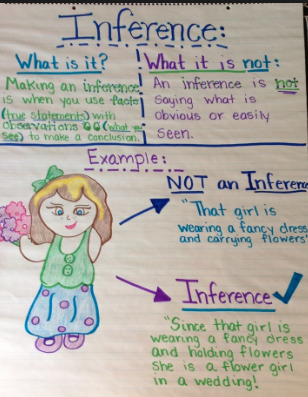 Inference:
What is it?
Making an inference
is when you use facts
(true statements) with
observations (what you
see) to make a conclusion.
What it is not:
An inference is not
saying what is
obvious or easily
seen.
Example:
NOT an Inferen
"That girl is
wearing a fancy dress
and carrying flowers"
Inference
"Since that girl is
wearing a fancy dress
and holding flowers
She is a flower girl
in a wedding!